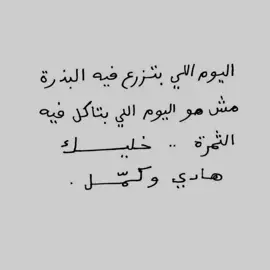 اليوم اللي بتزرع فيه البذرة
مش هو اليوم اللي بتاكل فيه
الثمرة .. خليـــك
هادي وكمّـــل .